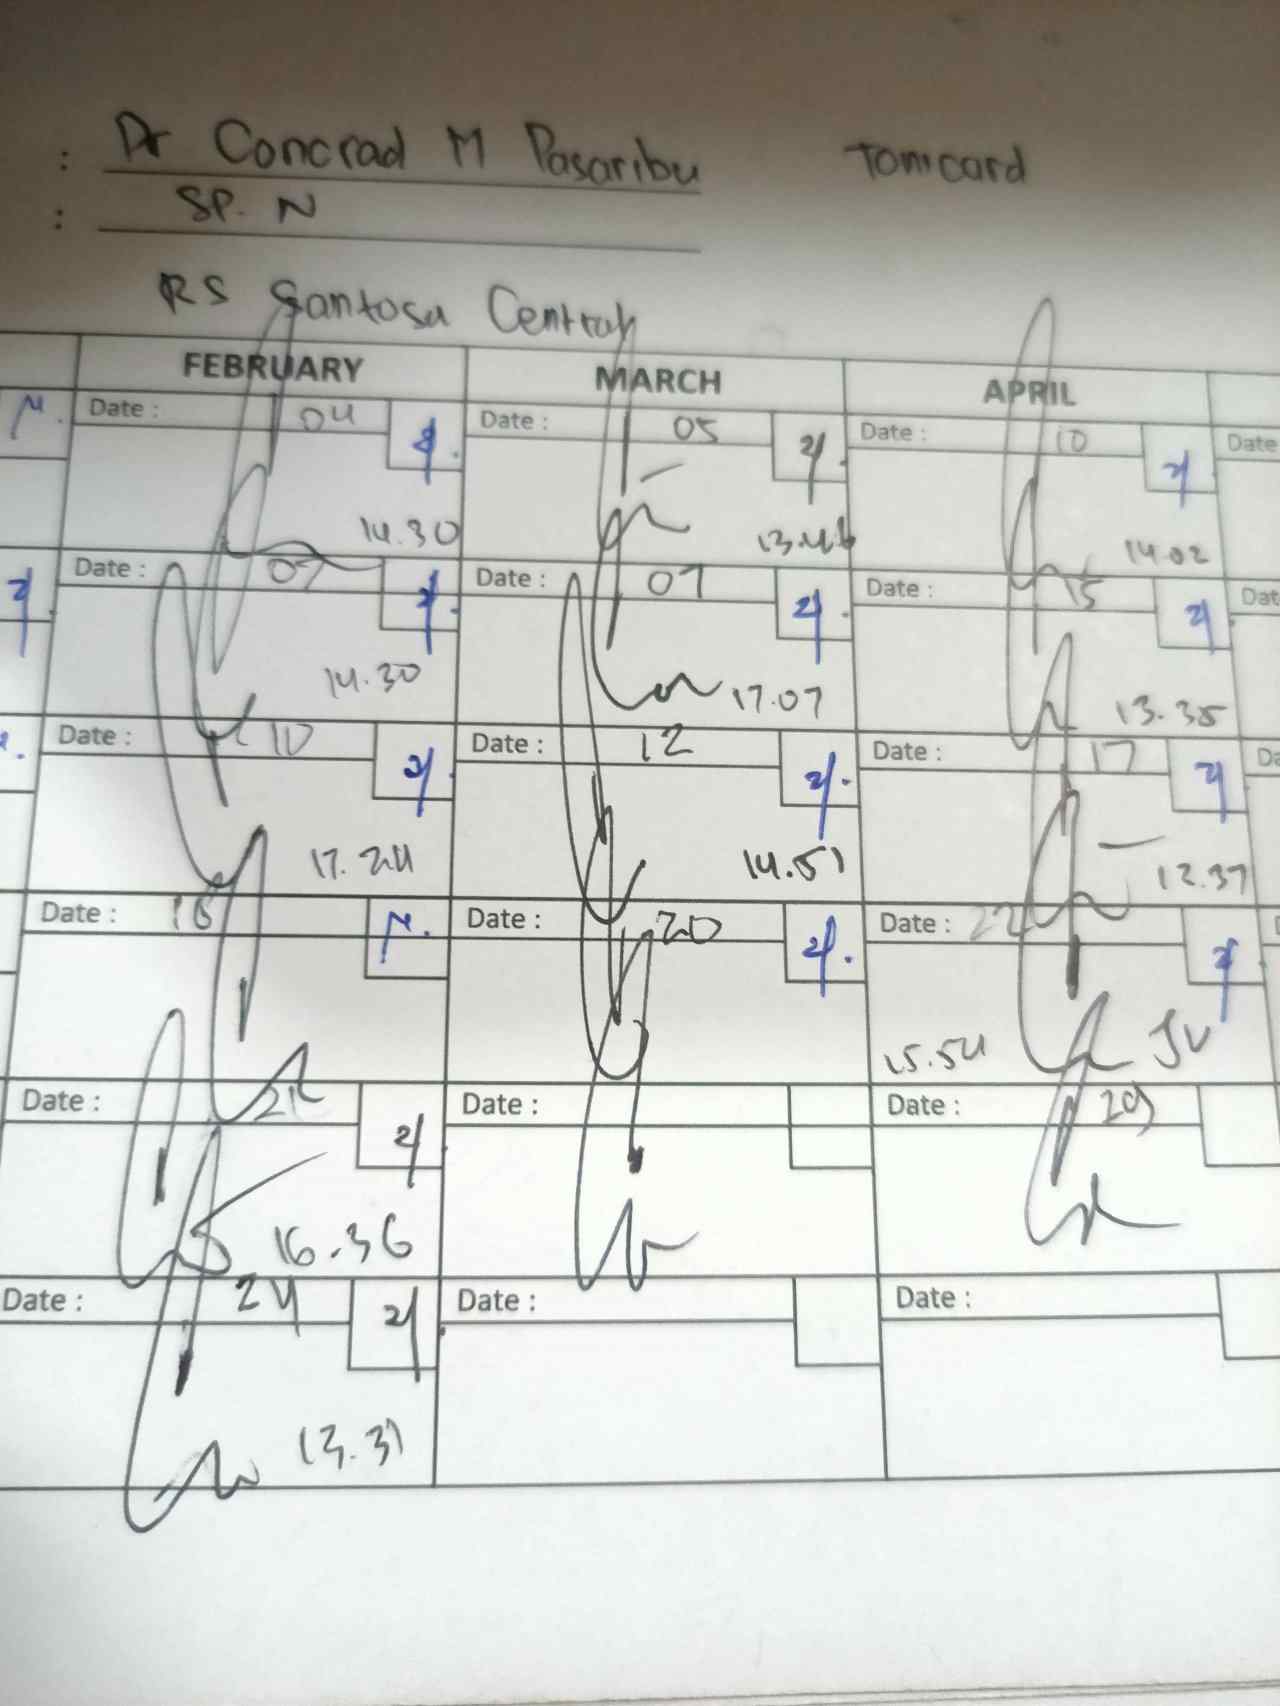 : Dr Concrad M Pasaribu Tomcard
: SP. N
RS Santosa Central
FEBRUARY MARCH APRIL
Date : 04 Date : 05 Date : 10 Date
14.30 13.46 14.02
Date : 07 Date : 07 Date : 15 Dat
14.30 17.07 13.35
Date : 10 Date : 12 Date : 17 Da
17.24 14.51 12.37
Date : 18 Date : 20 Date : 22 D
15.54 JV
Date : 21 Date : Date : 29
16.36
Date : 24 Date : Date :
13.31